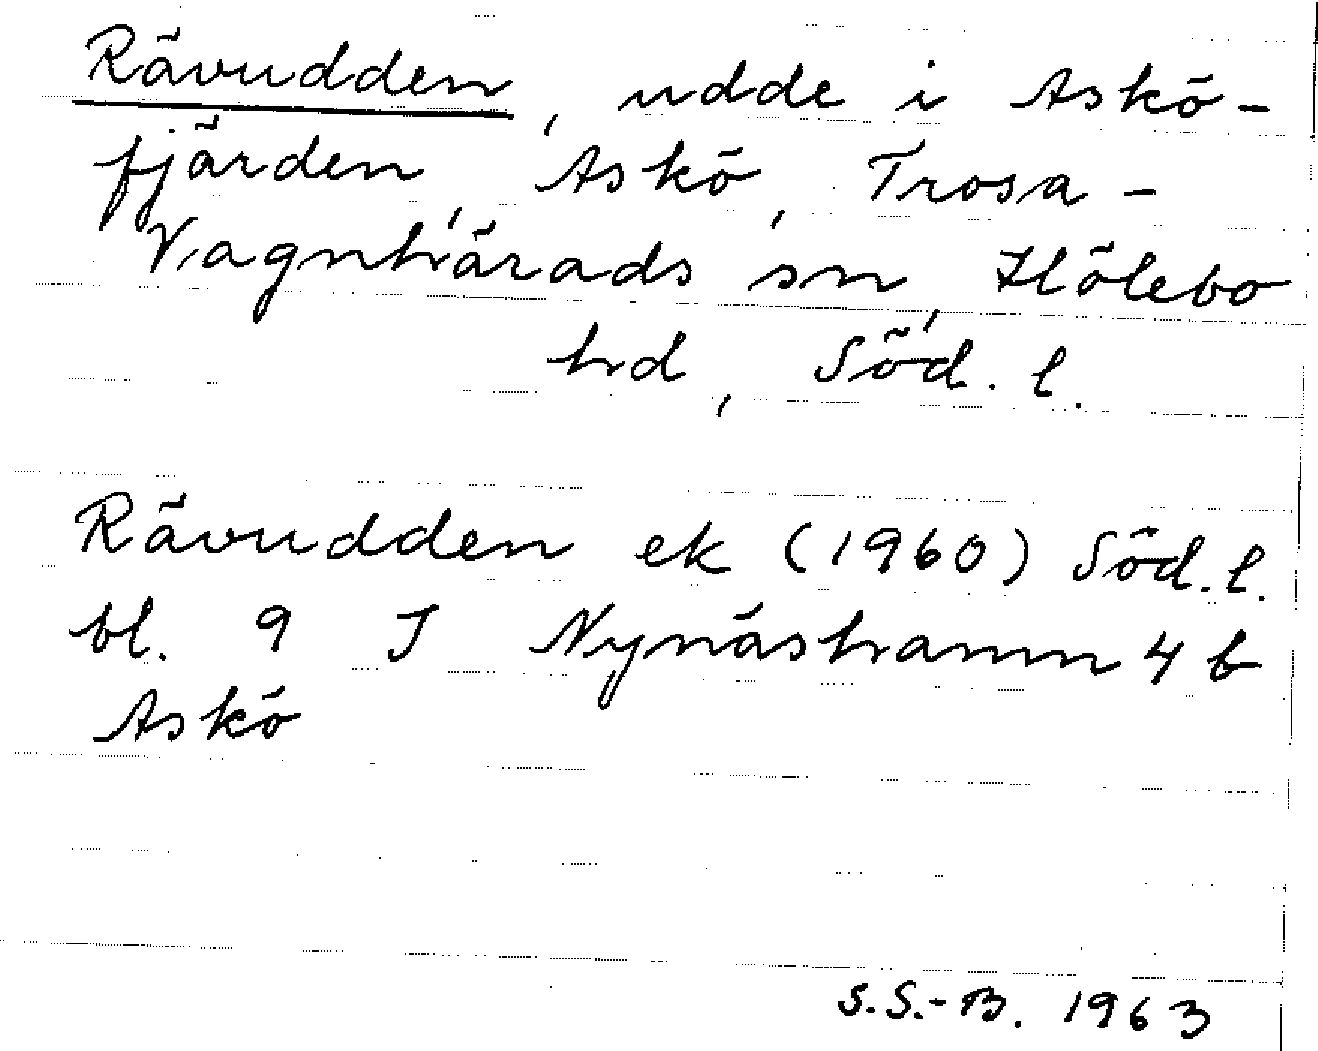 Rävudden, udde i Askö-
fjärden, Askö, Trosa-
Vagnhärads sn, Hölebo
hd, Söd. l.
Rävudden ek (1960) Söd. l.
bl. 9 I Nynäshamn 4 b
Askö
S.S.-B. 1963